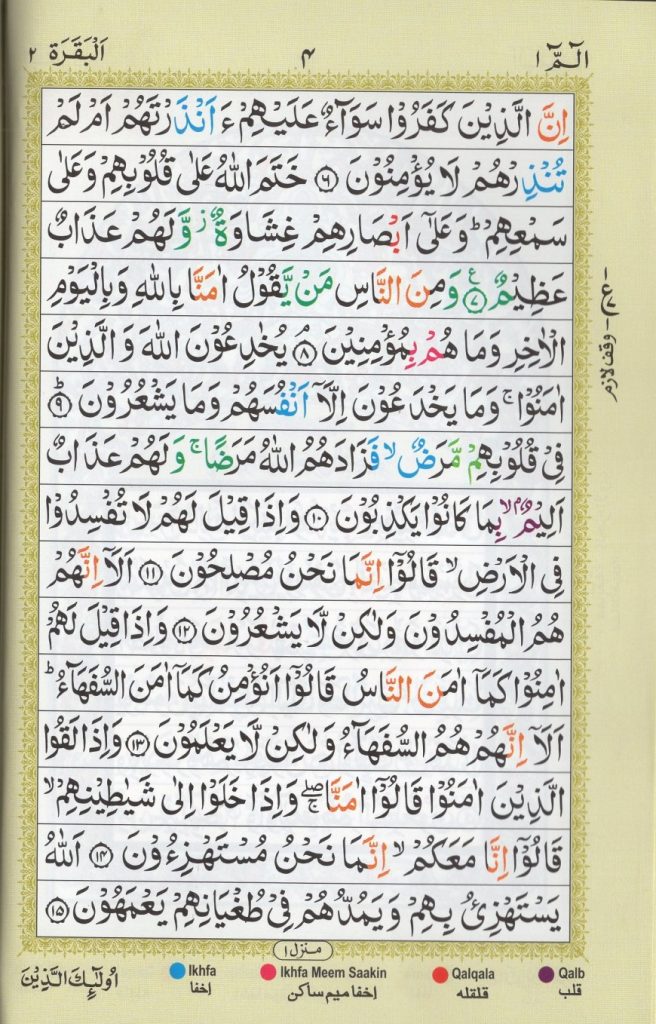 الٓمّٓ ١ ٤ اَلْبَقَرَة ٢
اِنَّ الَّذِيْنَ كَفَرُوْا سَوَآءٌ عَلَيْهِمْ ءَاَنْذَرْتَهُمْ اَمْ لَمْ
تُنْذِرْهُمْ لَا يُؤْمِنُوْنَ ۝٦ خَتَمَ اللّٰهُ عَلٰى قُلُوْبِهِمْ وَعَلٰى
سَمْعِهِمْ ؕ وَعَلٰٓى اَبْصَارِهِمْ غِشَاوَةٌ ؗ وَّلَهُمْ عَذَابٌ
عَظِيْمٌ ۝٧ وَمِنَ النَّاسِ مَنْ يَّقُوْلُ اٰمَنَّا بِاللّٰهِ وَبِالْيَوْمِ
الْاٰخِرِ وَمَا هُمْ بِمُؤْمِنِيْنَ ۝٨ يُخٰدِعُوْنَ اللّٰهَ وَالَّذِيْنَ
اٰمَنُوْا ۚ وَمَا يَخْدَعُوْنَ اِلَّآ اَنْفُسَهُمْ وَمَا يَشْعُرُوْنَ ۝٩ؕ
فِىْ قُلُوْبِهِمْ مَّرَضٌ ۙ فَزَادَهُمُ اللّٰهُ مَرَضًا ۚ وَلَهُمْ عَذَابٌ
اَلِيْمٌۢ ۙ بِمَا كَانُوْا يَكْذِبُوْنَ ۝١٠ وَاِذَا قِيْلَ لَهُمْ لَا تُفْسِدُوْا
فِى الْاَرْضِ ۙ قَالُوْٓا اِنَّمَا نَحْنُ مُصْلِحُوْنَ ۝١١ اَلَآ اِنَّهُمْ
هُمُ الْمُفْسِدُوْنَ وَلٰكِنْ لَّا يَشْعُرُوْنَ ۝١٢ وَاِذَا قِيْلَ لَهُمْ
اٰمِنُوْا كَمَآ اٰمَنَ النَّاسُ قَالُوْٓا اَنُؤْمِنُ كَمَآ اٰمَنَ السُّفَهَآءُ ؕ
اَلَآ اِنَّهُمْ هُمُ السُّفَهَآءُ وَلٰكِنْ لَّا يَعْلَمُوْنَ ۝١٣ وَاِذَا لَقُوا
الَّذِيْنَ اٰمَنُوْا قَالُوْٓا اٰمَنَّا ۖۚ وَاِذَا خَلَوْا اِلٰى شَيٰطِيْنِهِمْ ۙ
قَالُوْٓا اِنَّا مَعَكُمْ ۙ اِنَّمَا نَحْنُ مُسْتَهْزِءُوْنَ ۝١٤ اَللّٰهُ
يَسْتَهْزِئُ بِهِمْ وَيَمُدُّهُمْ فِىْ طُغْيَانِهِمْ يَعْمَهُوْنَ ۝١٥
وقف لازم
منزل ١
اُولٰٓئِكَ الَّذِيْنَ
Ikhfa Ikhfa Meem Saakin Qalqala Qalb
اِخفا اِخفا ميم ساكن قلقله قلب